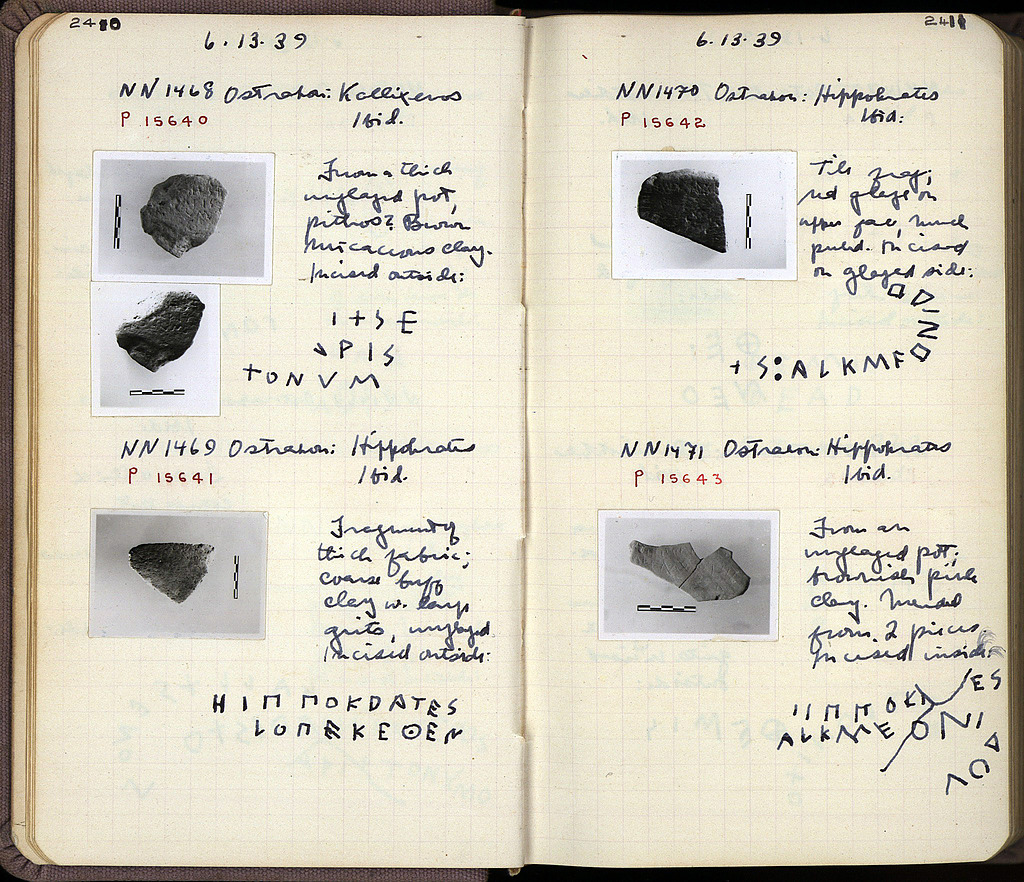 2410
6.13.39
NN1468 Ostrakon: Kallixenos
P 15640 Ibid.
From a thick
unglazed pot,
pithos? Brown
micaceous clay.
Incised outside:
Ι + S E
Ρ Ι S
+ Ο Ν V Μ
NN1469 Ostrakon: Hippokrates
P 15641 Ibid.
Fragment of
thick fabric;
coarse buff
clay w. large
grits, unglazed.
Incised outside:
Η Ι Π Π Ο Κ D Α Τ Ε S
L Ο Π Ε Κ Ε Θ Ε Ν
2411
6.13.39
NN1470 Ostrakon: Hippokrates
P 15642 Ibid:
Tile frag;
red glaze on
upper face, much
peeled. Incised
on glazed side:
+ S : Α L Κ Μ Ε Ο Ν Ι D Ο
NN1471 Ostrakon: Hippokrates
P 15643 Ibid.
From an
unglazed pot;
brownish pink
clay. Mended
from 2 pieces.
Incised inside:
Ι Ι Π Π Ο Κ Ε S
Α L Κ Μ Ε Ο Ν Ι D Ο V